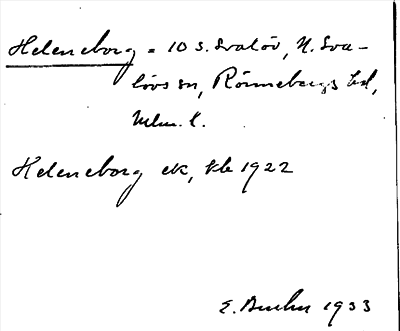 Heleneborg = 10 S. Svalöv, N. Sva-
lövs sn, Rönnebergs hd,
Mlm. l.
Heleneborg ek, kb 1922
E. 1933